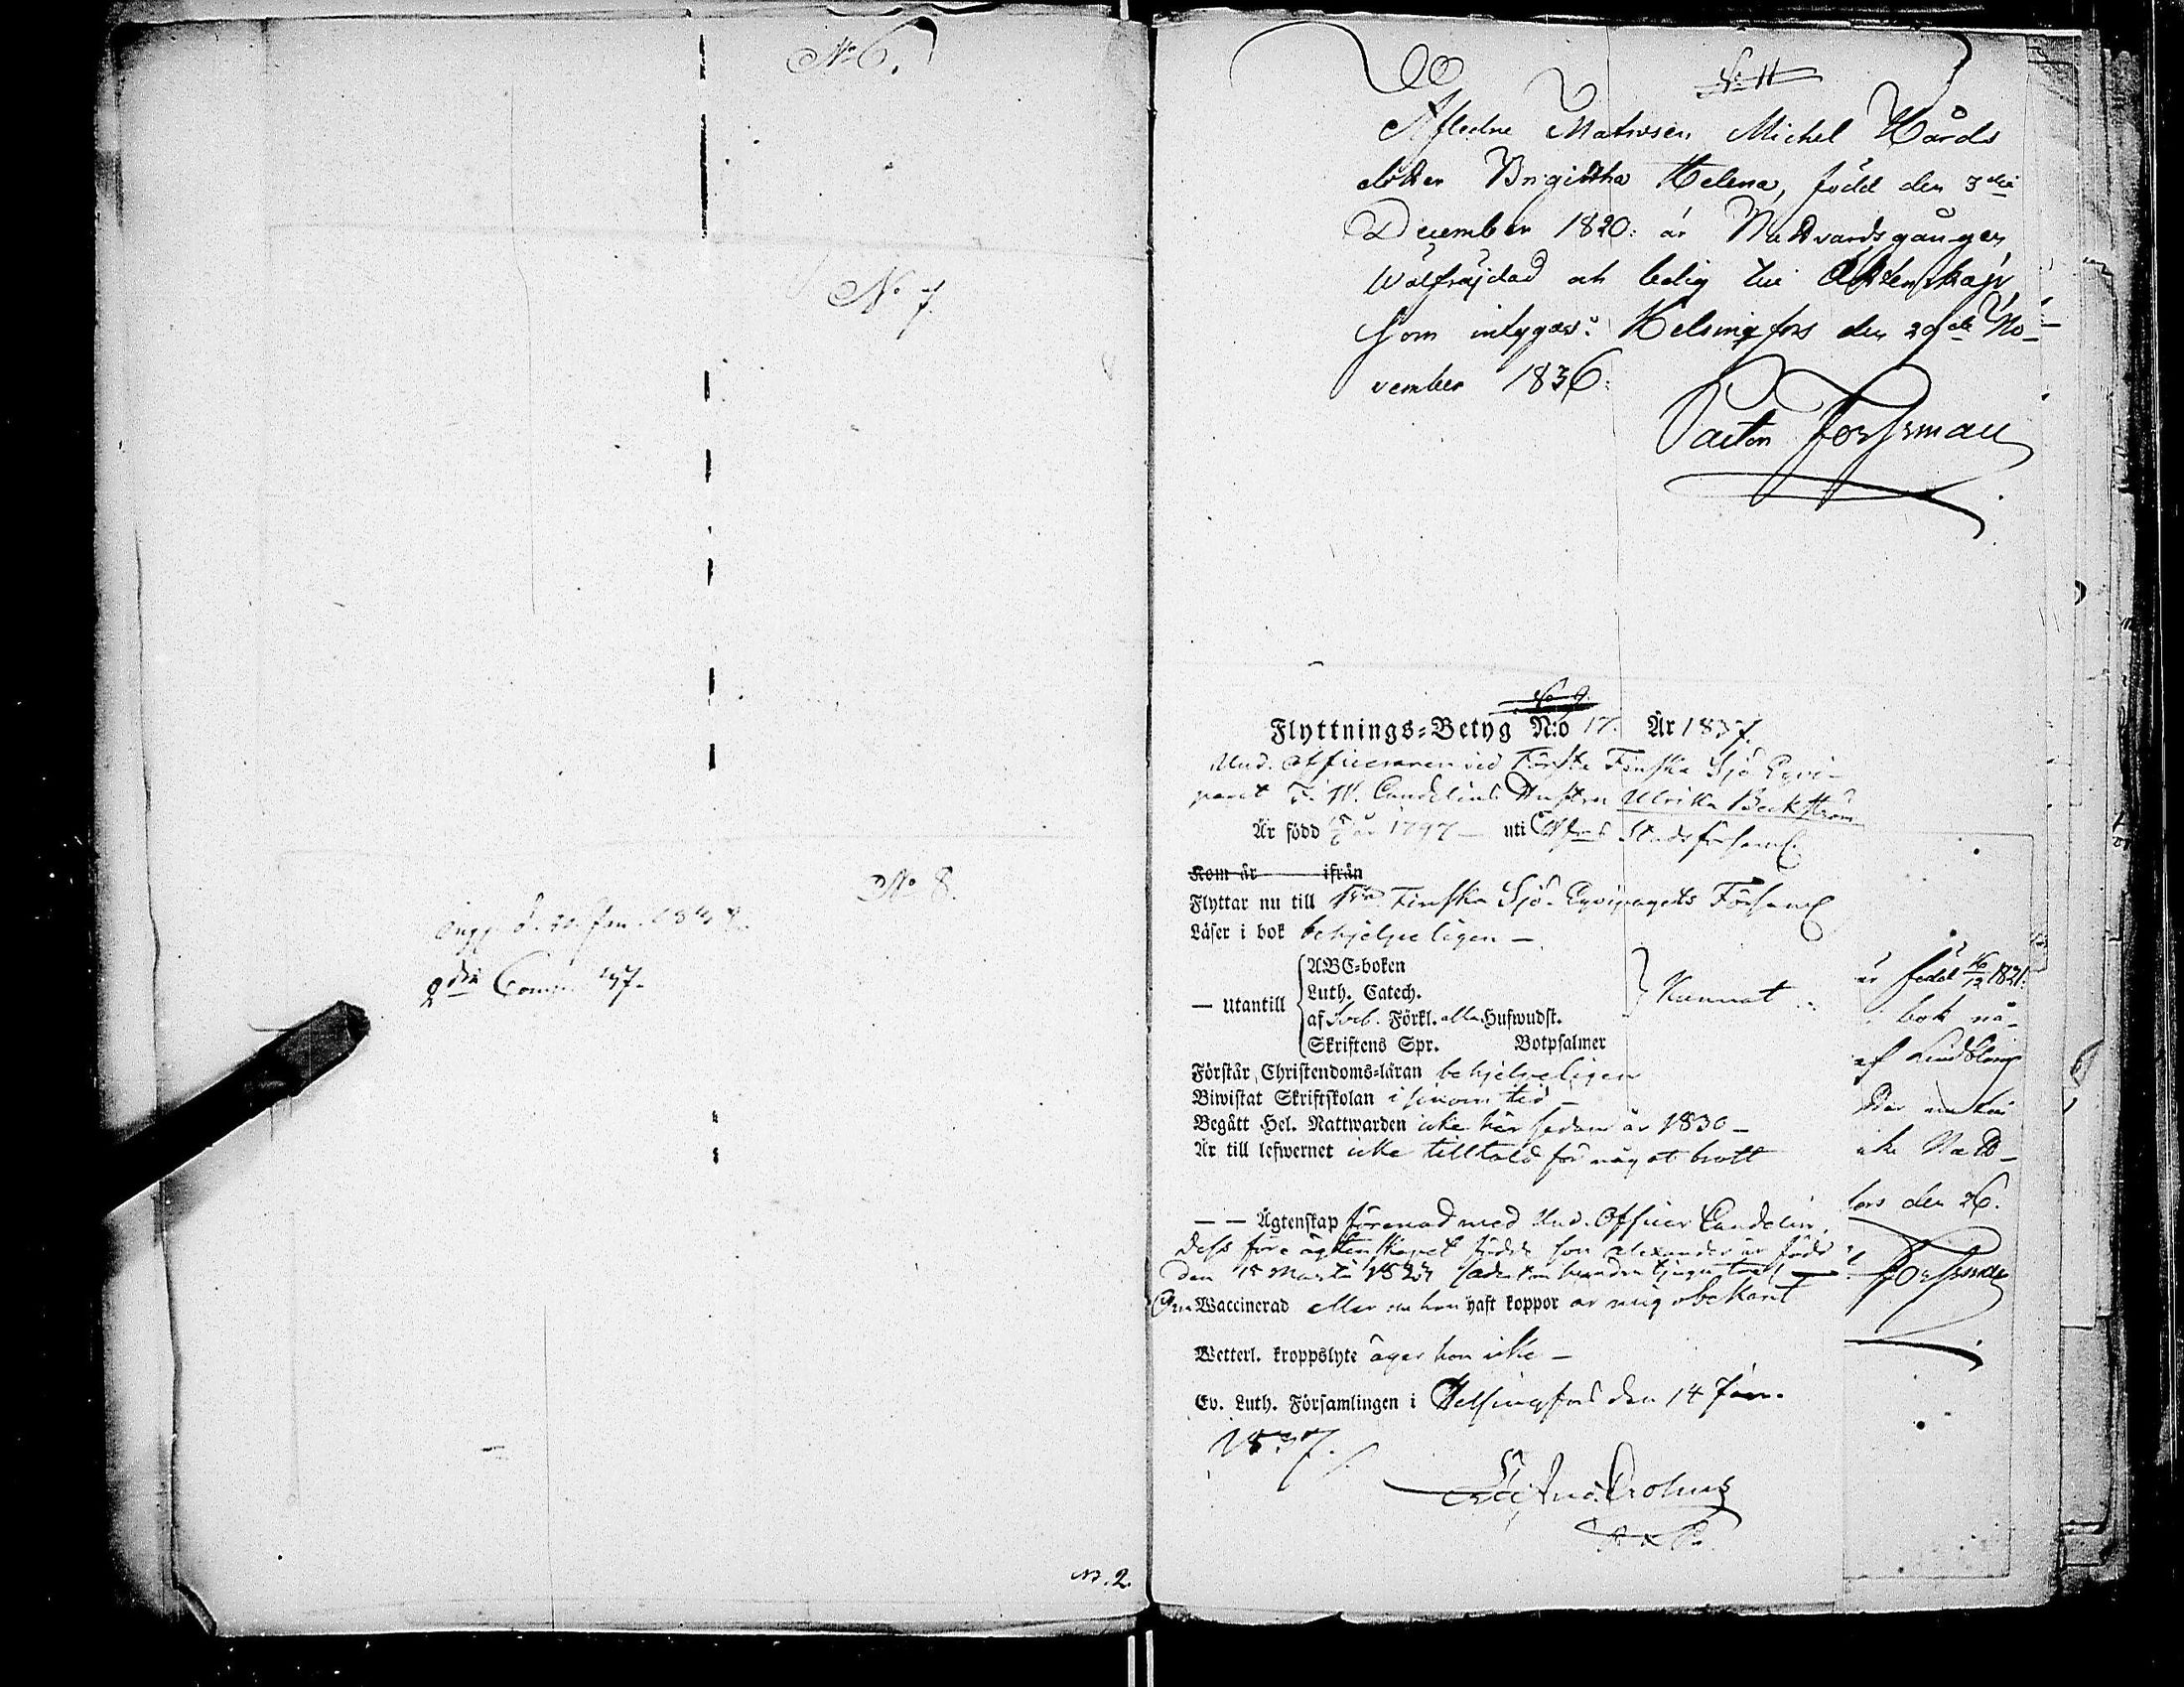 No 6.
No 7.
No 8.
2dra Comp. 137.
N. 2.
No 11
Afledne Matrosen Michel Hårds
dotter Brigittha Helena, född den 3die
December 1820: är Nattvardsgången
Wälfräjdad och ledig till Äktenskap,
Som intygas: Helsingfors den 29de No-
vember 1836:
Pastor Forssman
No 9.
Flyttnings-Betyg N:o 17. År 1837.
Und. Officeraren vid Första Finska Sjö Eqvi-
paget F. W. Candelins Hustru Ulrika Beckström
Är född år 1797 — uti H:fors Stadsförsaml.
Kom år ifrån
Flyttar nu till 1sta Finska Sjö-Eqvipagets Församl
Läser i bok behjelpeligen —
— Utantill
ABC-boken
Luth. Catech.
af Sveb. Förkl. alla Hufwudst.
Skriftens Spr. Botpsalmer
Kunnat
Förstår Christendoms-läran behjelpeligen
Biwistat Skriftskolan i sinom tid —
Begått Hel. Nattwarden icke här sedan år 1830 —
Är till lefwernet icke tilltald för något brott
— — Ägtenskap förenad med Und. Officer Candelin,
Dess före ägtenskapet födde son Alexander är född
den 15 Martii 1823 (aderton hundra tjugu tre) —
Om Waccinerad eller om hon haft koppor är mig obekant
Wetterl. kroppslyte äger hon icke —
Ev. Luth. Församlingen i Helsingfors den 14 Jan.
1837.
Crohns
är född 16/12 1821.
i bok nå-
af Lindblom
icke Natt-
fors den 26.
Forssman